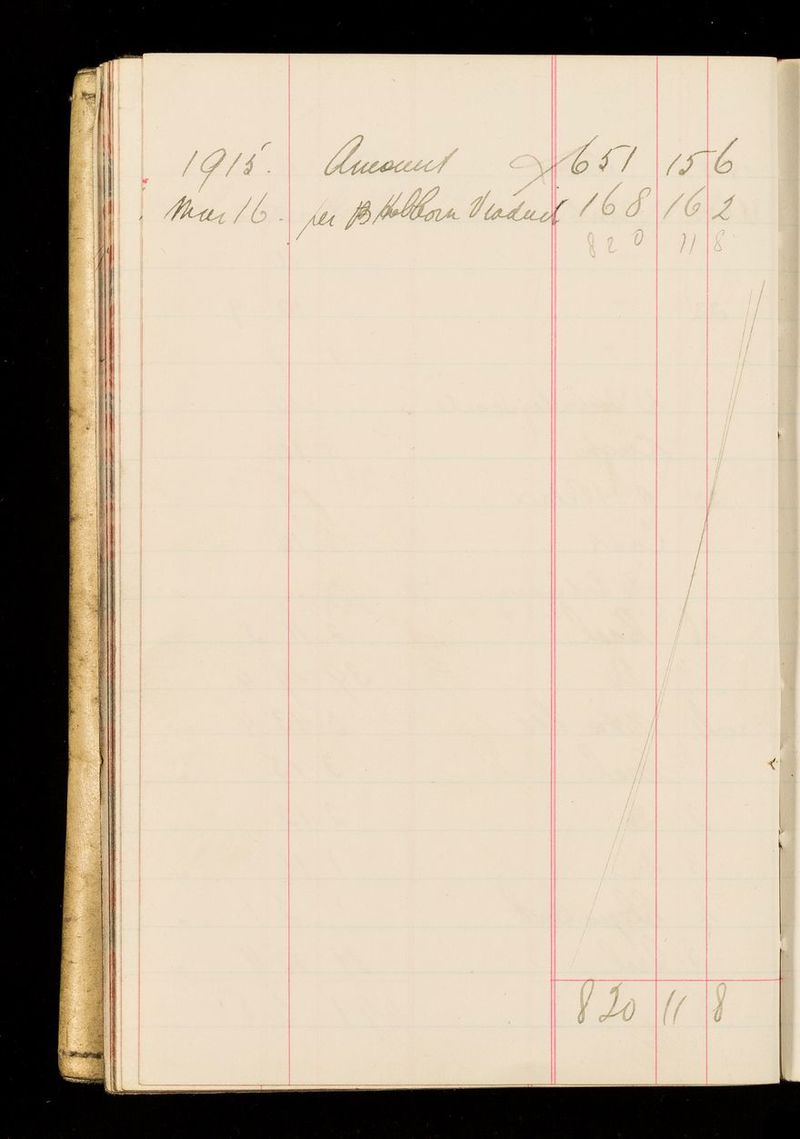 1915. Amount 651 15 6
Mar 16. per B Holborn Viaduct 168 16 2
820 11 8
820 11 8